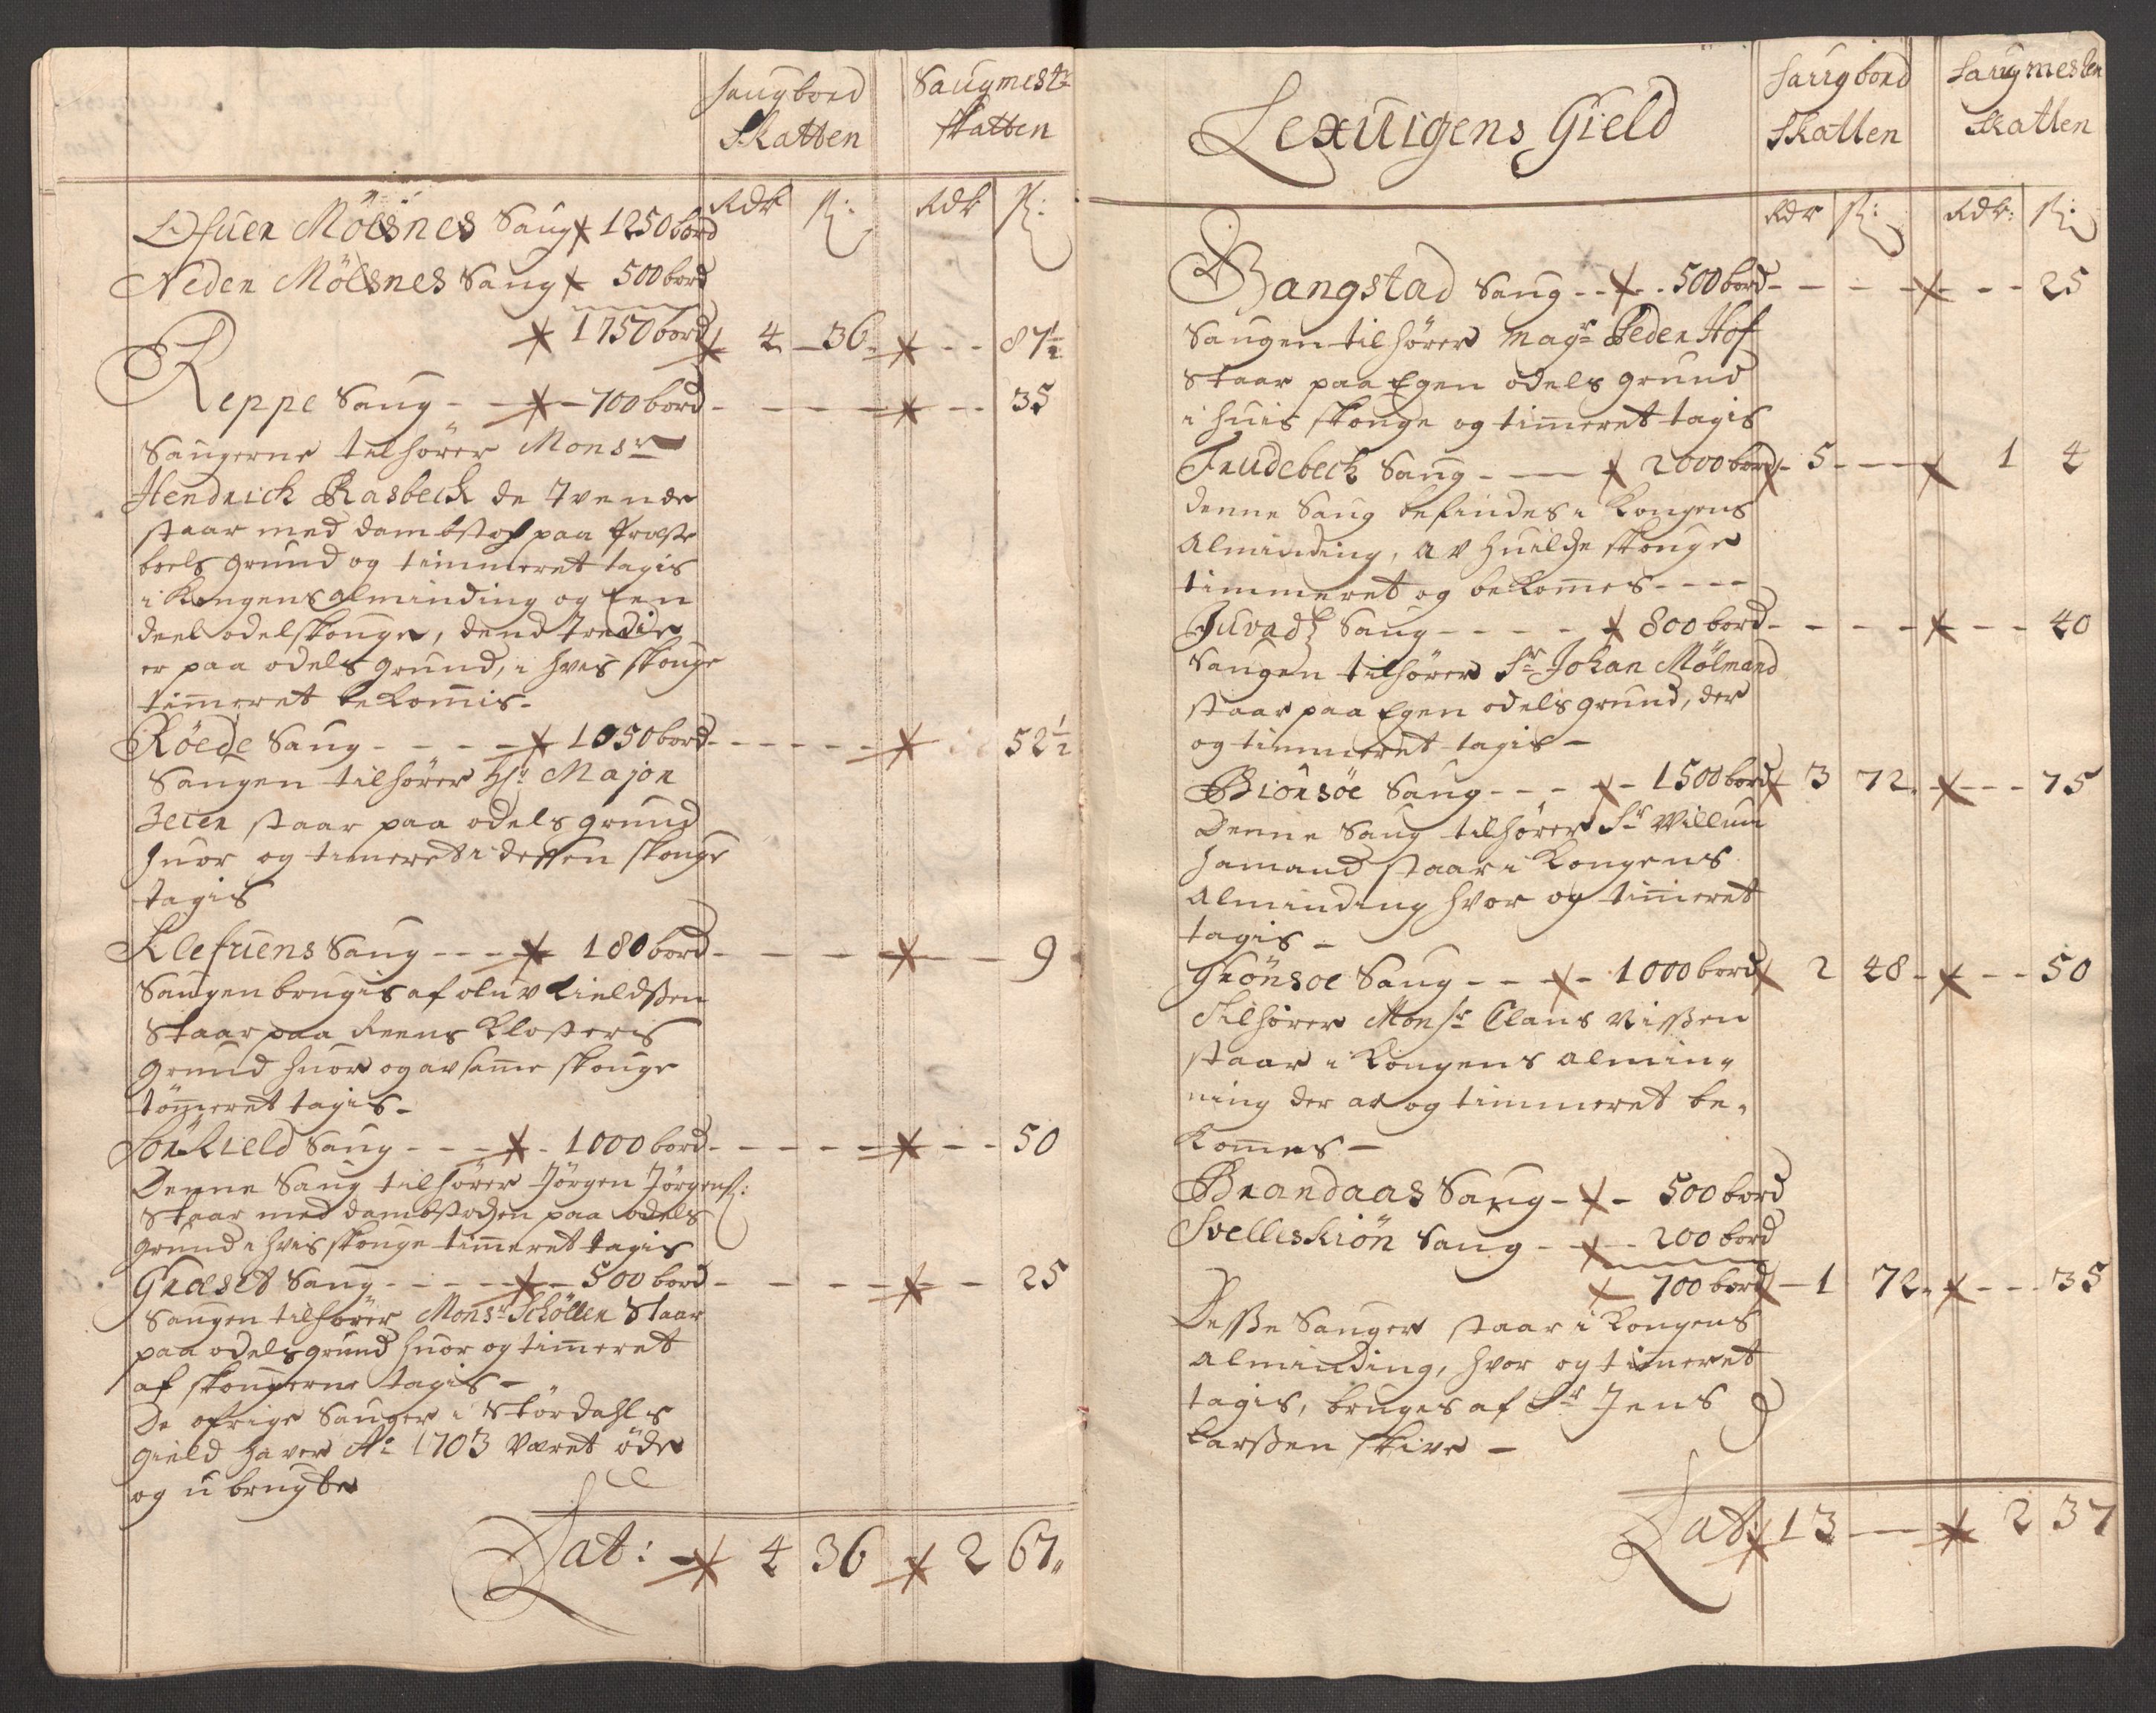 Saugbord Saugmestr
Skatten skatten
Rdr ß: Rdr ß:
Ofuer Mölsnes Saug 1250 bord
Neden Mölsnes Saug 500 bord
1750 bord 4 - 36 - - 87½
Reppe Saug - - 700 bord - - - - 35
Saugerne tilhörer Monsr
Hendrich Rasbech de Tvende
staar med dambstoch paa
boels grund og timmeret tagis
i Kongens alminding og Een
deel odelskouge, dend Tredie
er paa odels grund, i hvis skouge
tim̅eret bekom̅is -
Röede Saug - - - - 1050 bord - - - - - - 52½
Saugen tilhörer Hr Major
staar paa odels grund
huor og tim̅eret i dessen skouge
tagis
Klefuens Saug - - - - 180 bord - - - - - 9
Saugen brugis af oluv Kieldßen
staar paa Reens Closteris
grund huor og av samme skouge
töm̅eret tagis -
Sör Kield Saug - - - - 1000 bord - - - - - - 50
Denne Saug tilhörer Jörgen Jörgenß:
staar med dambstochen paa odels
grund i hvis skouge tim̅eret tagis
Græset Saug - - - - 500 bord - - - - - 25
Saugen tilhörer Monsr Schöller Staar
paa odels grund huor og tim̅eret
af skougerne tagis -
De öfrige Sauger i Stördahls
gield haver Ao 1703 Været öde
og ubrugte
Lat: - 4 36 2 67 "
Lexuigens Gield
Saugbord Saugmester
Skatten Skatten
Rdr ß: Rdr: ß:
Bangstad Saug - - - 500 bord - - - - - 25
Saugen tilhörer Magr Peder Hof
staar paa Egen odels grund
i huis skouge og tim̅eret tagis
Trudebech Saug - - - 2000 bord - 5 - - - 1 4
denne Saug befindes i Kongens
Alminding, av huilche skouge
timmeret og bekom̅es - - - -
Saug - - - - - 800 bord - - - - - - 40
Saugen tilhörer Sr Johan Mölmand
staar paa Egen odels grund, der
og timmeret tagis -
Biörsöe Saug - - - - 1500 bord 3 72 - - - - 75
Denne Saug tilhörer Sr Willum
Hamand staar i Kongens
Alminding hvor og tim̅eret
tagis -
Grönsöe Saug - - - - 1000 bord 2 48 - - - 50
tilhörer Monsr Claus Nißen
staar i Kongens almin"
ning der av og timmeret be"
kom̅es -
Brandaas Saug - - 500 bord
Svelleskiön Saug - - 200 bord
700 bord - 1 72 - - - - 35
Desse Sauger staar i Kongens
Alminding, hvor og tim̅eret
tagis, bruges af Sr Jens
Larßen skive -
Lat: 13 - - 2 37